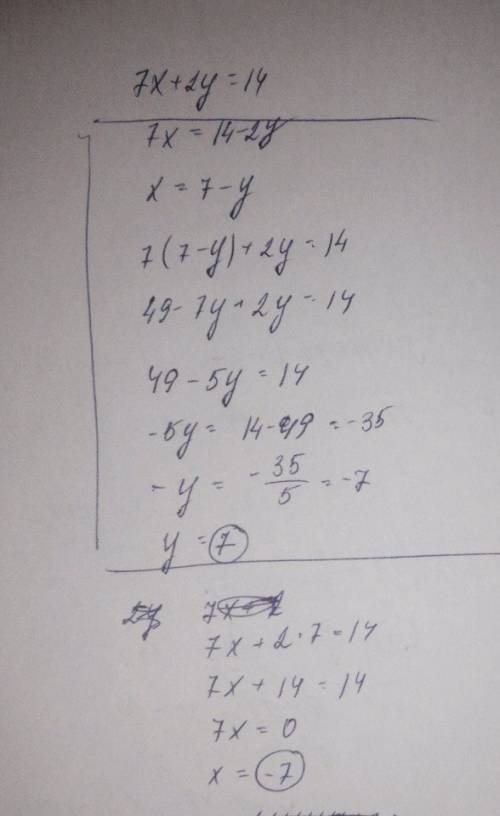 7x+2y=14
7x = 14-2y
x = 7-y
7(7-y)+2y=14
49-7y+2y=14
49-5y=14
-5y= 14-49=-35
-y = -35/5 = -7
y = 7
7x+2·7=14
7x+14=14
7x=0
x=-7